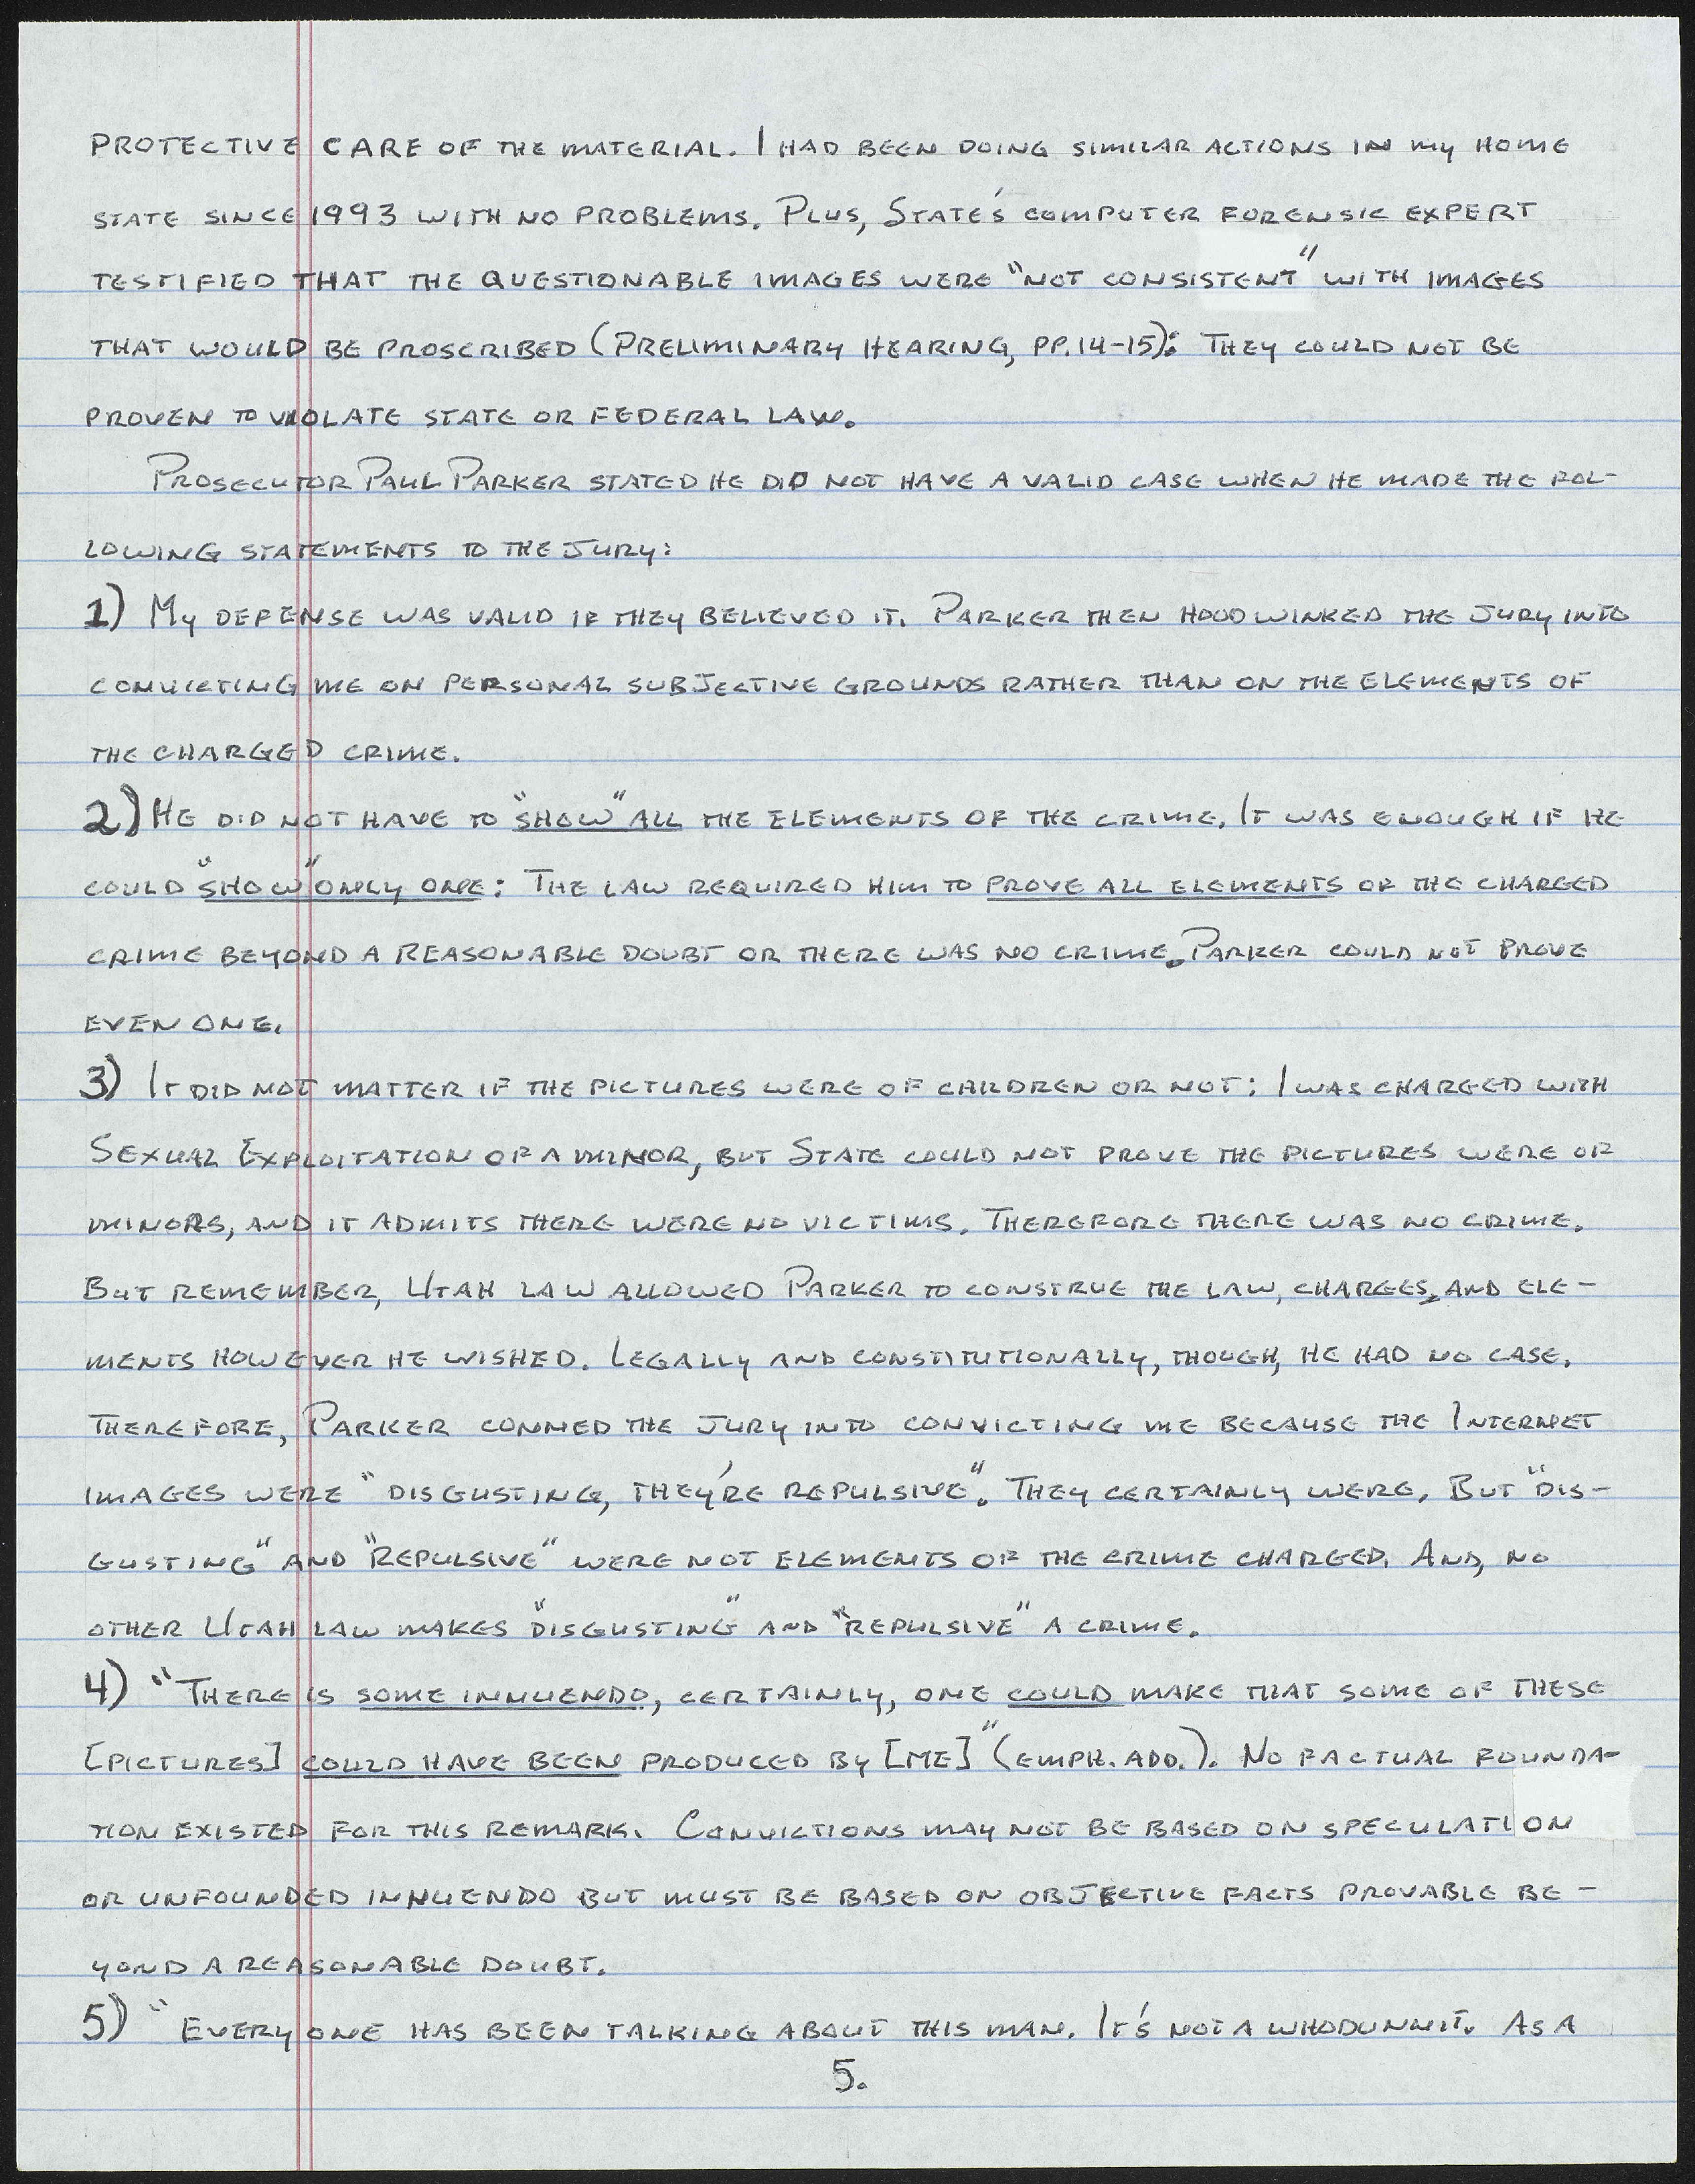 PROTECTIVE CARE OF THE MATERIAL. I HAD BEEN DOING SIMILAR ACTIONS IN MY HOME
STATE SINCE 1993 WITH NO PROBLEMS. PLUS, STATE'S COMPUTER FORENSIC EXPERT
TESTIFIED THAT THE QUESTIONABLE IMAGES WERE "NOT CONSISTENT" WITH IMAGES
THAT WOULD BE PROSCRIBED (PRELIMINARY HEARING, PP.14-15): THEY COULD NOT BE
PROVEN TO VIOLATE STATE OR FEDERAL LAW.
PROSECUTOR PAUL PARKER STATED HE DID NOT HAVE A VALID CASE WHEN HE MADE THE FOL-
LOWING STATEMENTS TO THE JURY:
1) MY DEFENSE WAS VALID IF THEY BELIEVED IT. PARKER THEN HOODWINKED THE JURY INTO
CONVICTING ME ON PERSONAL SUBJECTIVE GROUNDS RATHER THAN ON THE ELEMENTS OF
THE CHARGED CRIME.
2) HE DID NOT HAVE TO "SHOW" ALL THE ELEMENTS OF THE CRIME. IT WAS ENOUGH IF HE
COULD "SHOW" ONLY ONE: THE LAW REQUIRED HIM TO PROVE ALL ELEMENTS OF THE CHARGED
CRIME BEYOND A REASONABLE DOUBT OR THERE WAS NO CRIME. PARKER COULD NOT PROVE
EVEN ONE.
3) IT DID NOT MATTER IF THE PICTURES WERE OF CHILDREN OR NOT: I WAS CHARGED WITH
SEXUAL EXPLOITATION OF A MINOR, BUT STATE COULD NOT PROVE THE PICTURES WERE OF
MINORS, AND IT ADMITS THERE WERE NO VICTIMS. THEREFORE THERE WAS NO CRIME.
BUT REMEMBER, UTAH LAW ALLOWED PARKER TO CONSTRUE THE LAW, CHARGES, AND ELE-
MENTS HOWEVER HE WISHED. LEGALLY AND CONSTITUTIONALLY, THOUGH, HE HAD NO CASE.
THEREFORE, PARKER CONNED THE JURY INTO CONVICTING ME BECAUSE THE INTERNET
IMAGES WERE "DISGUSTING, THEY'RE REPULSIVE". THEY CERTAINLY WERE. BUT "DIS-
GUSTING" AND "REPULSIVE" WERE NOT ELEMENTS OF THE CRIME CHARGED. AND, NO
OTHER UTAH LAW MAKES "DISGUSTING" AND "REPULSIVE" A CRIME.
4) "THERE IS SOME INNUENDO, CERTAINLY, ONE COULD MAKE THAT SOME OF THESE
[PICTURES] COULD HAVE BEEN PRODUCED BY [ME]" (EMPH. ADD.). NO FACTUAL FOUNDA-
TION EXISTED FOR THIS REMARK. CONVICTIONS MAY NOT BE BASED ON SPECULATION
OR UNFOUNDED INNUENDO BUT MUST BE BASED ON OBJECTIVE FACTS PROVABLE BE-
YOND A REASONABLE DOUBT.
5) "EVERYONE HAS BEEN TALKING ABOUT THIS MAN. IT'S NOT A WHODUNNIT. AS A
5.